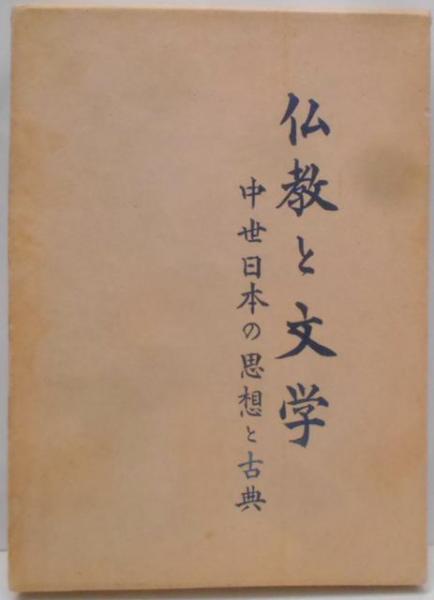 仏教と文学
中世日本の思想と古典